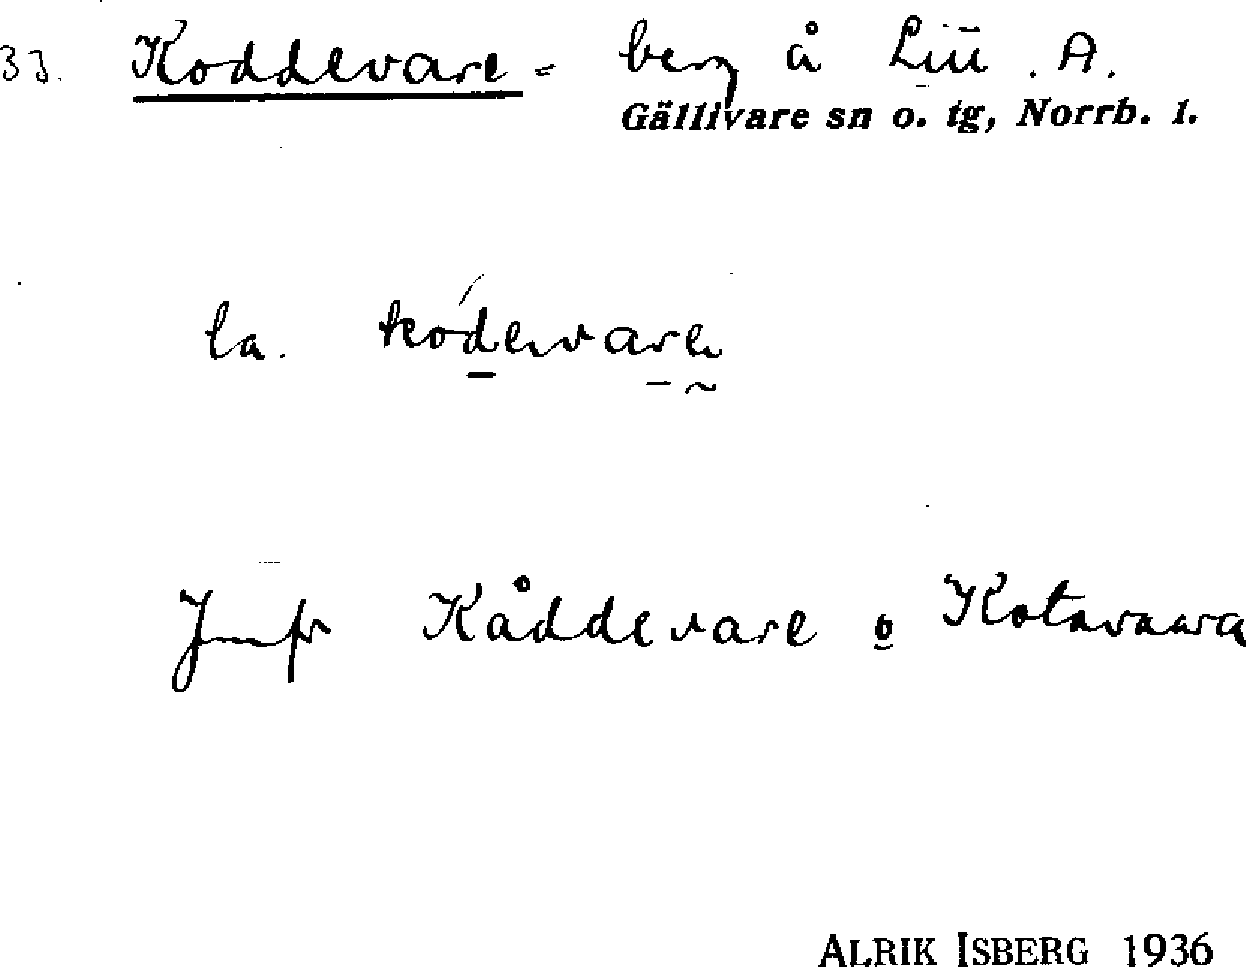 33. Koddevare - berg å Liu. A.
Gällivare sn o. tg, Norrb. l.
la. kódevare
Jmfr Kåddevare o Kotavaara
ALRIK ISBERG 1936